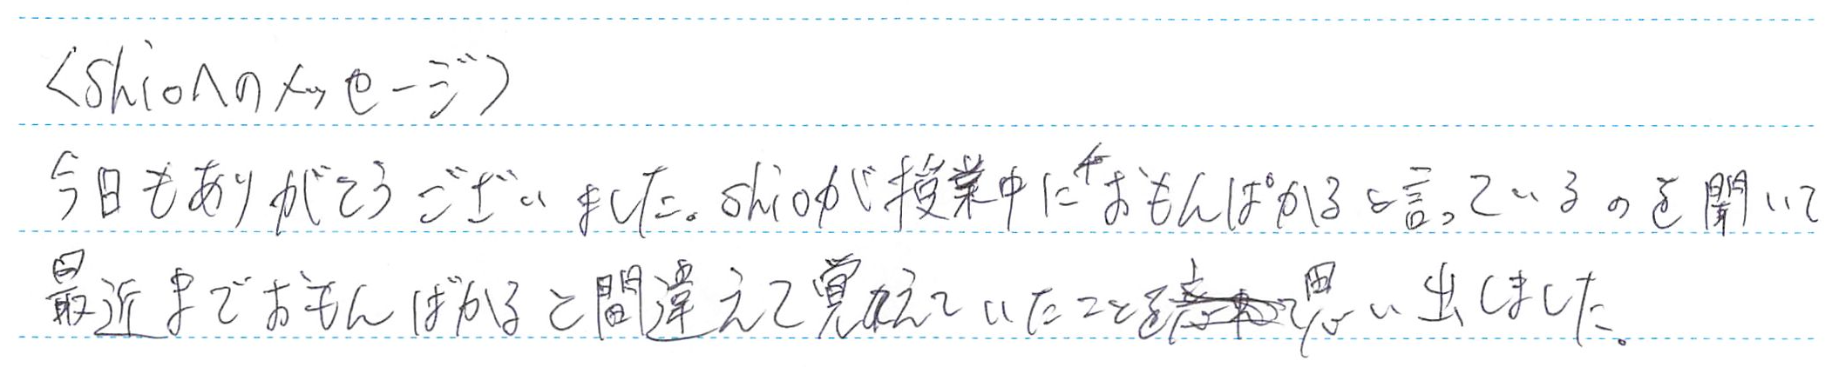 <shioへのメッセージ>
今日もありがとうございました。shioが授業中におもんぱかると言っているのを聞いて
最近までおもんばかると間違えて覚えていたことを思い出しました。